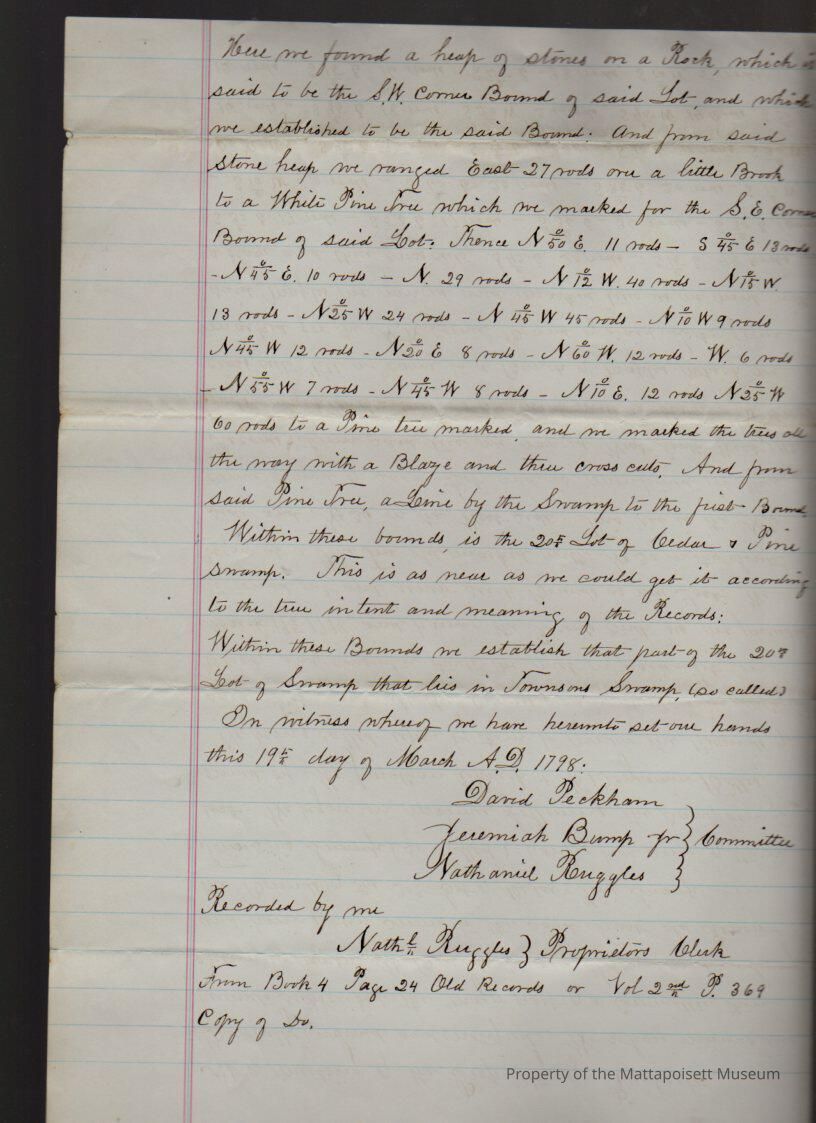 Here we found a heap of stones on a Rock, which is
said to be the S.W. Corner Bound of said Lot, and which
we established to be the said Bound: And from said
Stone heap we ranged East 27 rods over a little Brook
to a White Pine Tree which we marked for the S.E. Corner
Bound of said Lot: Thence N 50° E. 11 rods — S 45° E 13 rods
- N 45° E. 10 rods — N. 29 rods - N 12° W. 40 rods - N 15° W
13 rods - N 25° W 24 rods - N 45° W 45 rods - N 10° W 9 rods
N 45° W 12 rods - N 20° E 8 rods - N 60° W. 12 rods - W. 6 rods
- N 55° W 7 rods - N 45° W 8 rods - N 10° E. 12 rods N 25° W
60 rods to a Pine tree marked, and we marked the trees all
the way with a Blaze and three cross cuts. And from
said Pine Tree, a Line by the Swamp to the first Bound.
Within these bounds is the 20th Lot of Cedar & Pine
swamp. This is as near as we could get it according
to the true intent and meaning of the Records:
Within these Bounds we establish that part of the 20th
Lot of Swamp that lies in Townsons Swamp, (so called)
In witness whereof we have hereunto set our hands
this 19th day of March A.D. 1798:
David Peckham
Jeremiah Bump Jr } Committee
Nathaniel Ruggles
Recorded by me
Nathl Ruggles } Proprietors Clerk
From Book 4 Page 24 Old Records or Vol 2nd P. 369
Copy of Do.
Property of the Mattapoisett Museum